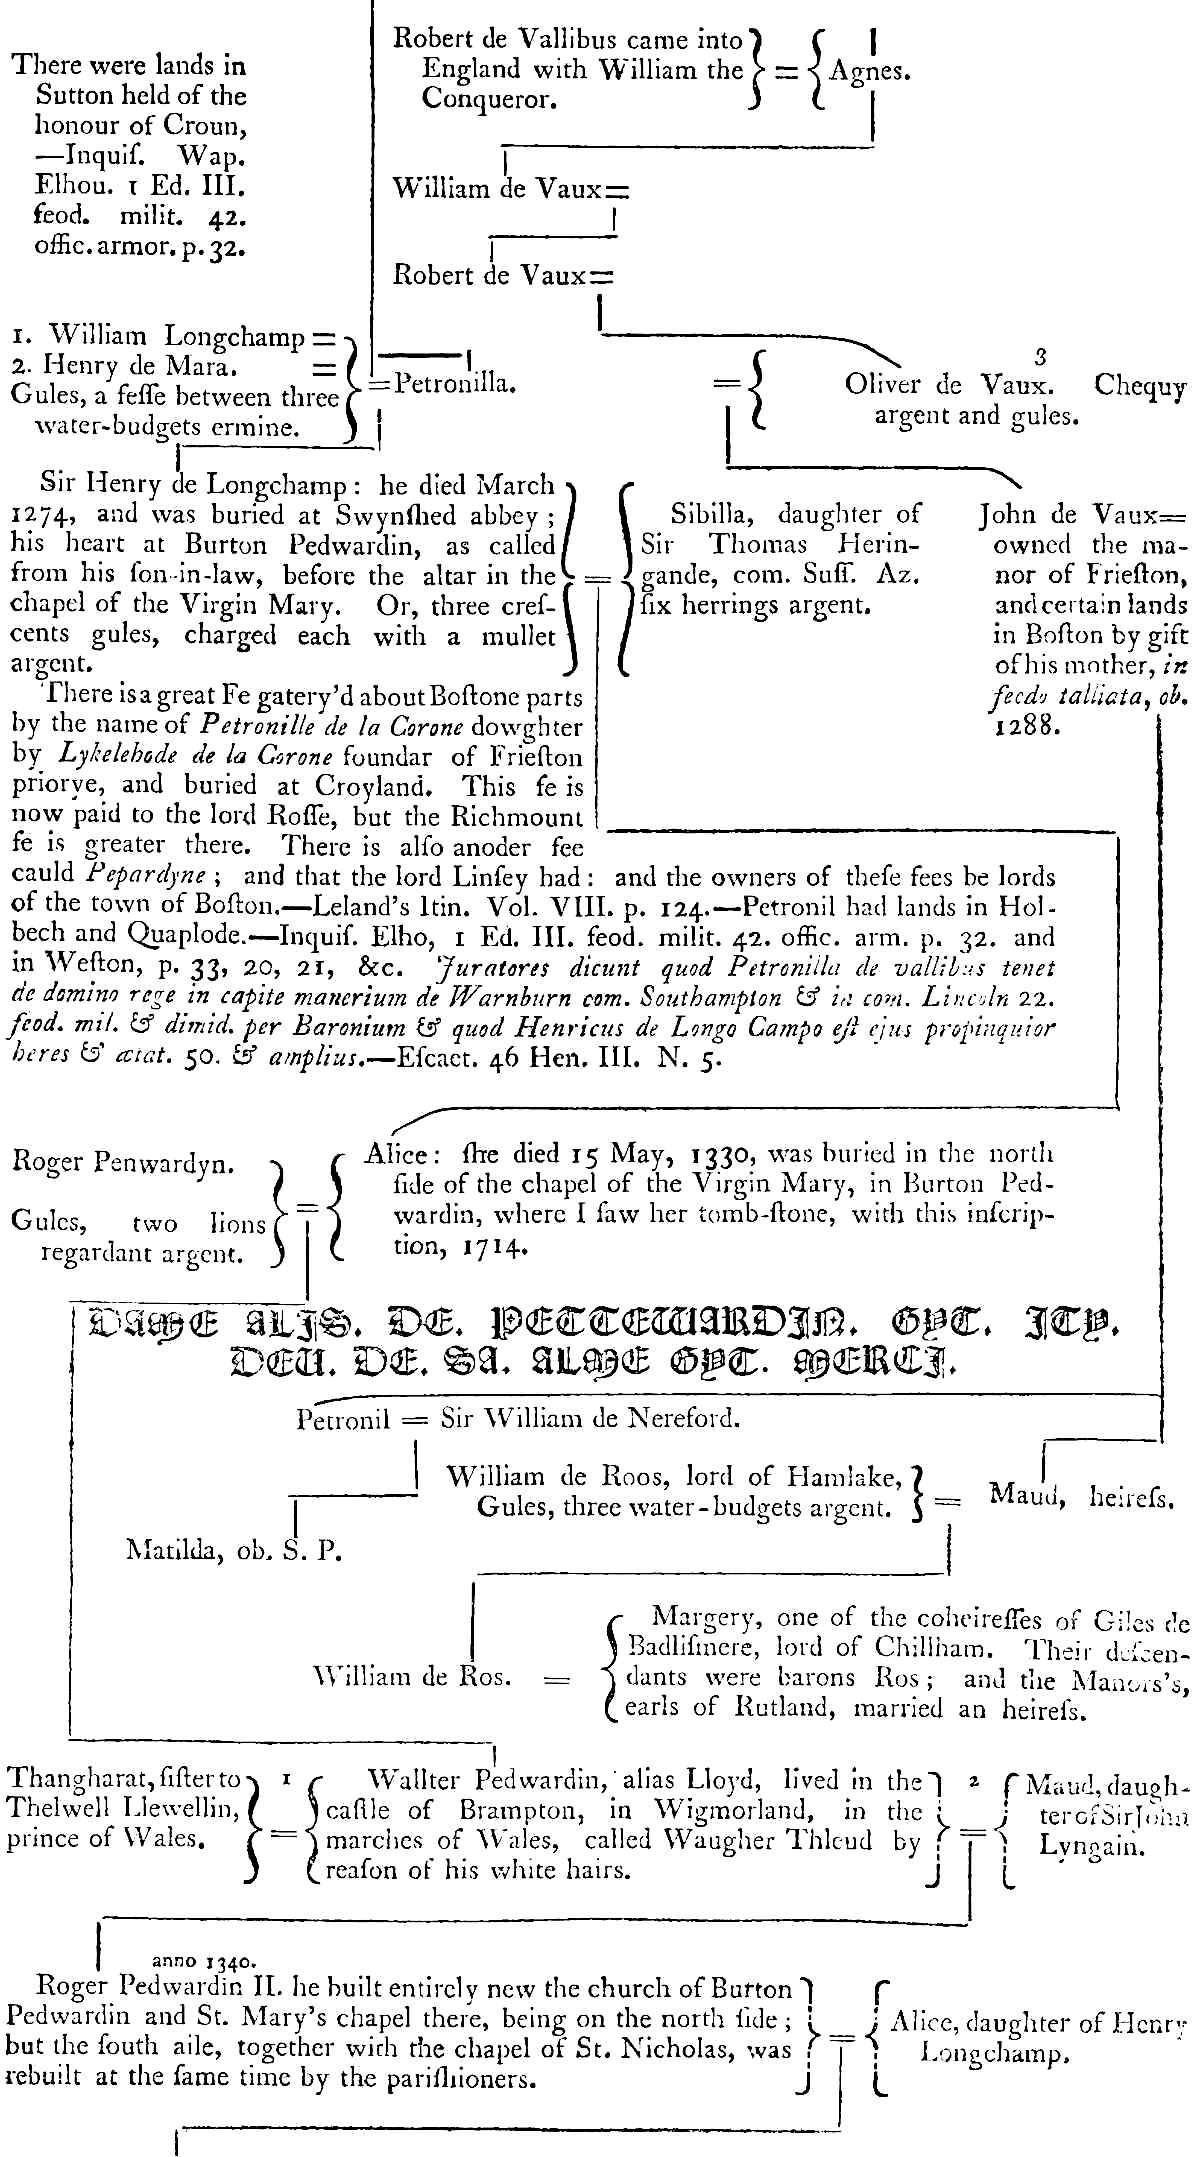 There were lands in
Sutton held of the
honour of Croun,
—Inquiſ. Wap.
Elhou. 1 Ed. III.
feod. milit. 42.
offic. armor. p. 32.
Robert de Vallibus came into
England with William the
Conqueror.
=
Agnes.
William de Vaux=
Robert de Vaux=
1. William Longchamp =
2. Henry de Mara. =
Gules, a feſſe between three
water-budgets ermine.
=Petronilla.
=
3
Oliver de Vaux. Chequy
argent and gules.
Sir Henry de Longchamp: he died March
1274, and was buried at Swynſhed abbey;
his heart at Burton Pedwardin, as called
from his ſon-in-law, before the altar in the
chapel of the Virgin Mary. Or, three creſ-
cents gules, charged each with a mullet
argent.
=
Sibilla, daughter of
Sir Thomas Herin-
gande, com. Suff. Az.
ſix herrings argent.
John de Vaux=
owned the ma-
nor of Frieſton,
and certain lands
in Boſton by gift
of his mother, in
feedo talliata, ob.
1288.
There is a great Fe gatery'd about Boſtone parts
by the name of Petronille de la Corone dowghter
by Lykelehode de la Corone foundar of Frieſton
priorye, and buried at Croyland. This fe is
now paid to the lord Roſſe, but the Richmount
fe is greater there. There is alſo anoder fee
cauld Pepardyne; and that the lord Linſey had: and the owners of theſe fees be lords
of the town of Boſton.—Leland's Itin. Vol. VIII. p. 124.—Petronil had lands in Hol-
bech and Quaplode.—Inquiſ. Elho, 1 Ed. III. feod. milit. 42. offic. arm. p. 32. and
in Weſton, p. 33, 20, 21, &c. Juratores dicunt quod Petronilla de vallibus tenet
de domino rege in capite manerium de Warnburn com. Southampton & in com. Lincoln 22.
feod. mil. & dimid. per Baronium & quod Henricus de Longo Campo eſt ejus propinquior
heres & ætat. 50. & amplius.—Eſcaet. 46 Hen. III. N. 5.
Roger Penwardyn.
Gules, two lions
regardant argent.
=
Alice: ſhe died 15 May, 1330, was buried in the north
ſide of the chapel of the Virgin Mary, in Burton Ped-
wardin, where I ſaw her tomb-ſtone, with this inſcrip-
tion, 1714.
DAME ALIS. DE. PETTEWARDIN. GYT. ICY.
DEU. DE. SA. ALME EYT. MERCI.
Petronil = Sir William de Nereford.
William de Roos, lord of Hamlake,
Gules, three water-budgets argent.
=
Maud, heireſs.
Matilda, ob. S. P.
William de Ros. =
Margery, one of the coheireſſes of Giles de
Badliſmere, lord of Chillham. Their deſcen-
dants were barons Ros; and the Manors's,
earls of Rutland, married an heireſs.
Thangharat, ſiſter to
Thelwell Llewellin,
prince of Wales.
1
=
Wallter Pedwardin, alias Lloyd, lived in the
caſtle of Brampton, in Wigmorland, in the
marches of Wales, called Waugher Thleud by
reaſon of his white hairs.
2
=
Maud, daugh-
ter of Sir John
Lyngain.
anno 1340.
Roger Pedwardin II. he built entirely new the church of Burton
Pedwardin and St. Mary's chapel there, being on the north ſide;
but the ſouth aile, together with the chapel of St. Nicholas, was
rebuilt at the ſame time by the pariſhioners.
=
Alice, daughter of Henry
Longchamp.